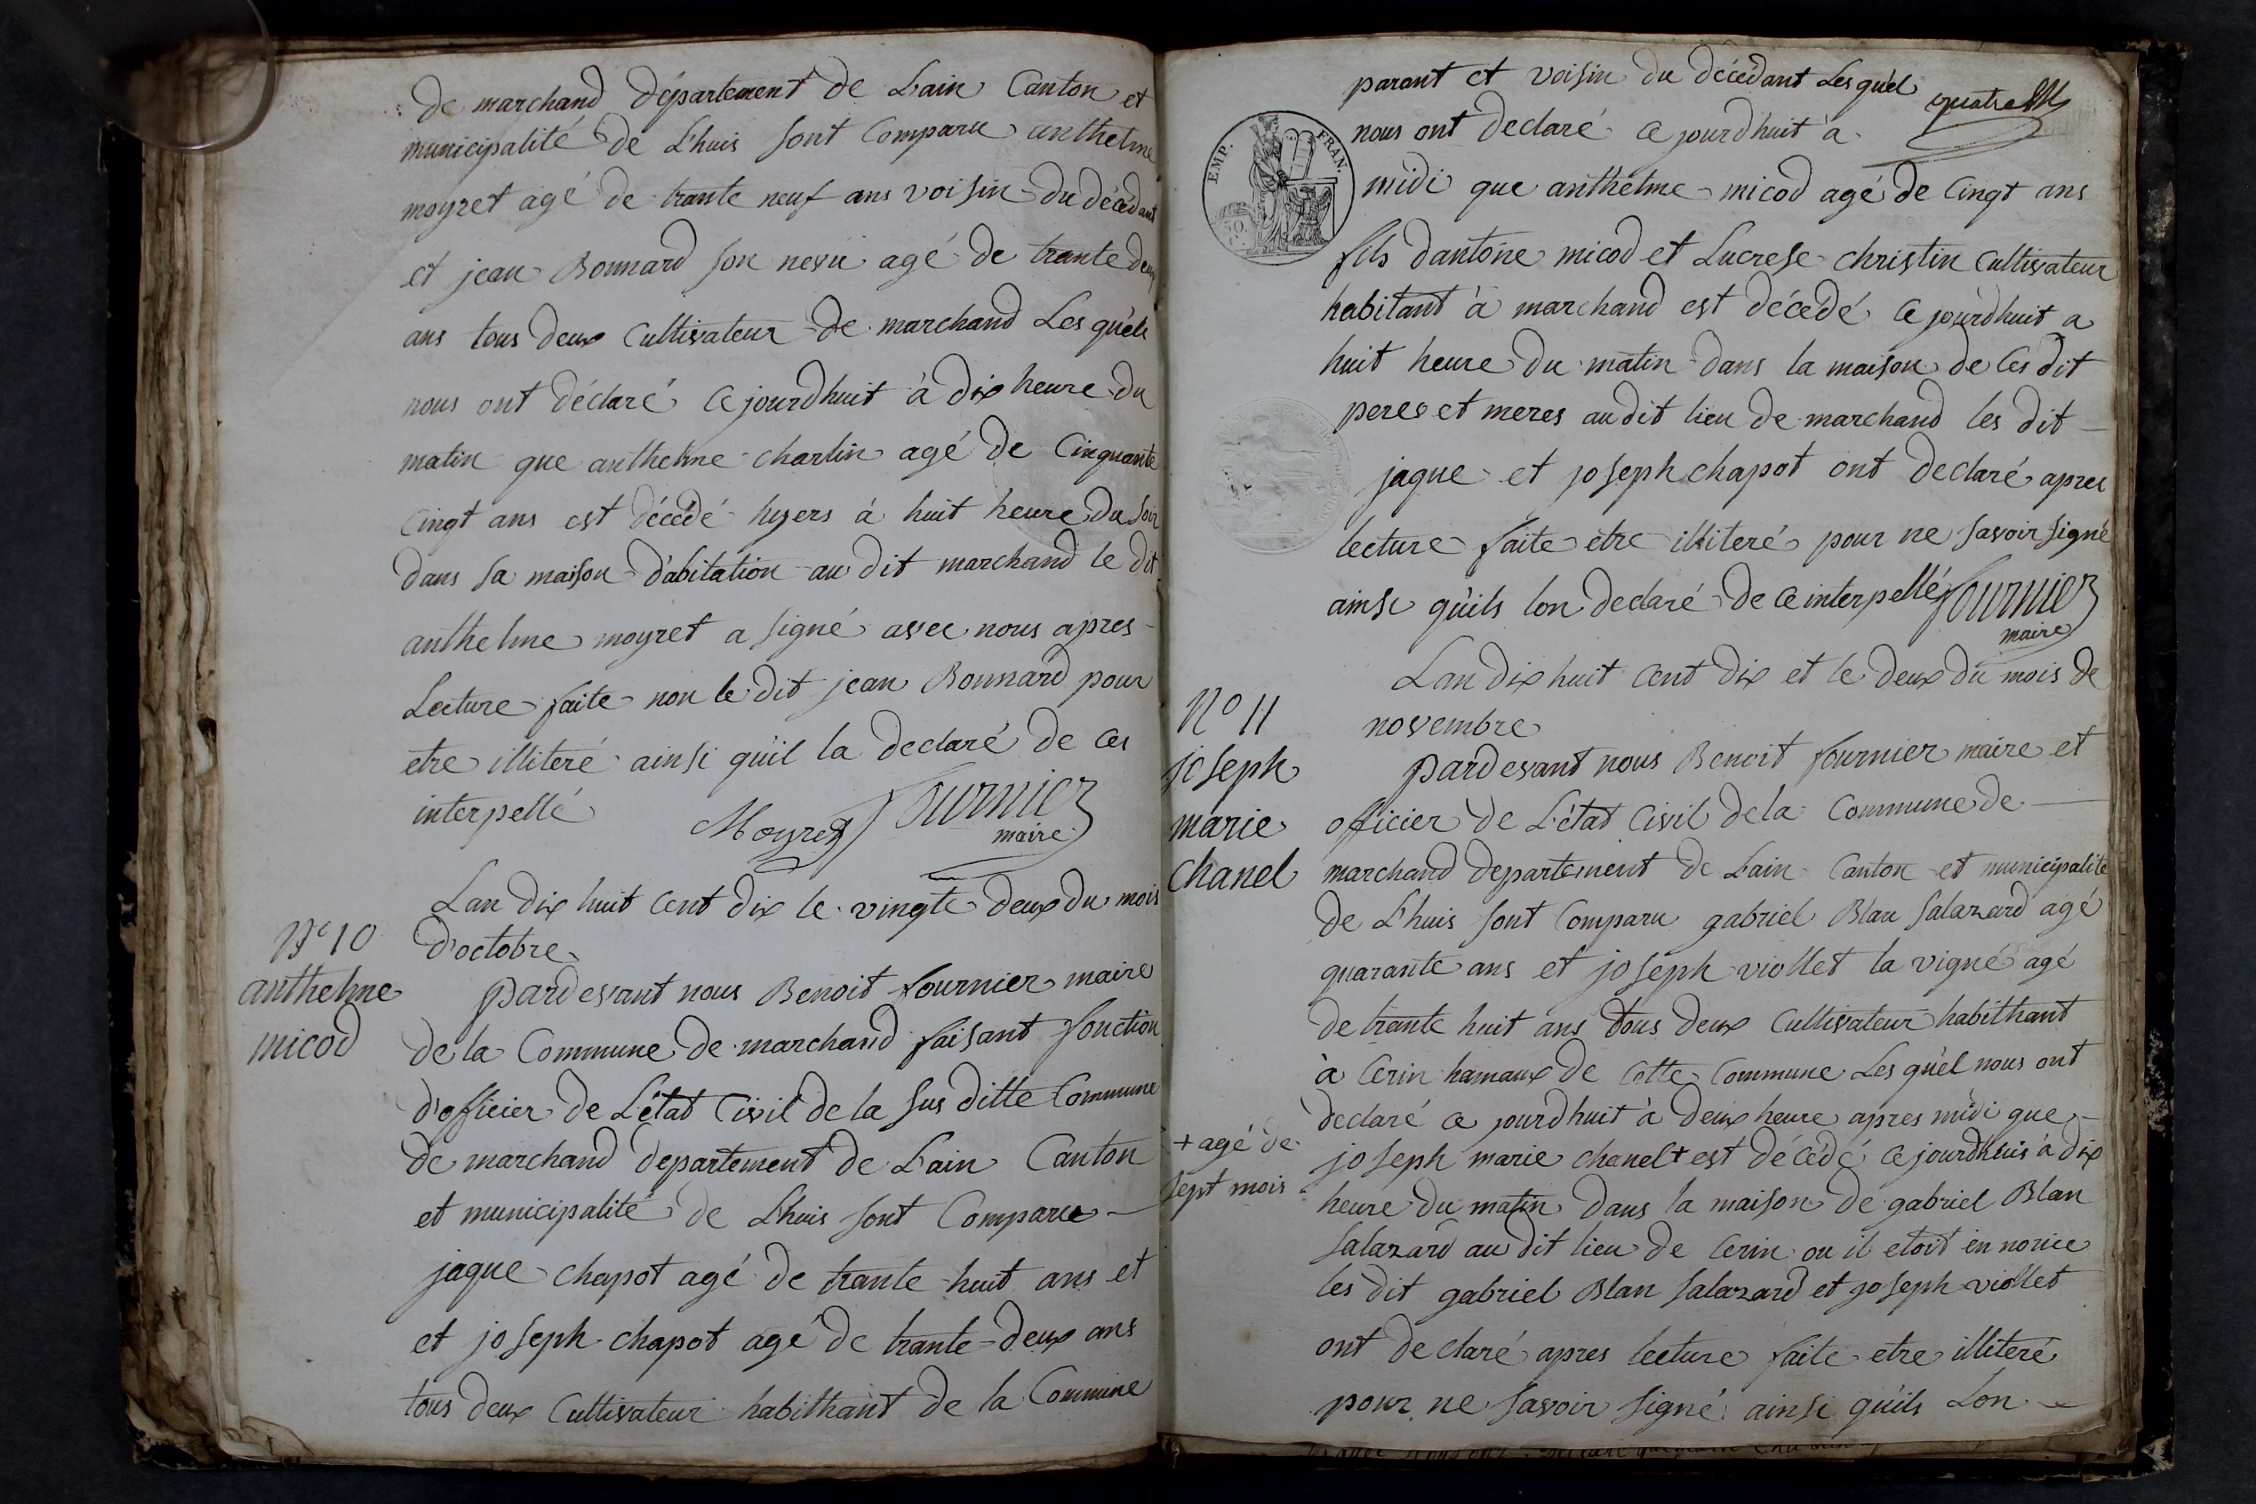 de marchand département de Lain Canton et
municipalité de Lhuis sont Comparu anthelme
moyret agé de trante neuf ans voisin du décédant
et jean Bonnard son neveu agé de trante deux
ans tous deux Cultivateur de marchand Les quels
nous ont déclaré Ce jourdhuit à dix heure du
matin que anthelme charlin agé de Cinquante
Cinqt ans est décédé hyers à huit heure du soir
dans sa maison d'abitation au dit marchand le dit
anthelme moyret a signé avec nous apres
Lecture faite non le dit jean Bonnard pour
etre illiteré ainsi quil la declaré de Ces
interpellé Moyret fournier
maire
Lan dix huit Cent dix le vingte deux du mois
d'octobre
N° 10
anthelme
micod
pardevant nous Benoit fournier maire
de la Commune de marchand faisant fonction
d'officier de L'état Civil de la sus ditte Commune
de marchand departement de Lain Canton
et municipalité de Lhuis sont Comparu
jaque chapot agé de trante huit ans et
et joseph chapot agé de trante deux ans
tous deux Cultivateur habithant de la Commune
parant et voisin du décédant Les quel
nous ont declaré Ce jourdhuit à
quatre
EMP. FRAN.
midi que anthelme micod agé de Cinqt ans
fils dantoine micod et Lucrese christin Cultivateur
habitant à marchand est décédé Ce jourdhuit a
huit heure du matin dans la maison de Ces dit
peres et meres audit lieu de marchand les dit
jaque et joseph chapot ont declaré apres
lecture faite etre illiteré pour ne savoir signé
ainsi quils lon declaré de Ce interpellé fournier
maire
Lan dix huit Cent dix et le deux du mois de
novembre
N° 11
joseph
marie
Chanel
pardevant nous Benoit fournier maire et
officier de L'état Civil de la Commune de
marchand departement de Lain Canton et municipalité
de Lhuis sont Comparu gabriel Blan salazard agé
quarante ans et joseph viollet la vigne agé
de trante huit ans tous deux Cultivateur habithant
à Cerin hamaux de Cette Commune Les quel nous ont
declaré Ce jourdhuit à deux heure apres midi que
joseph marie chanel + est décédé Ce jourdhuis à dix
+ agé de
sept mois
heure du matin dans la maison de gabriel Blan
salazard au dit lieu de Cerin ou il etoit en norice
les dit gabriel Blan salazard et joseph viollet
ont declaré apres lecture faite etre illiteré
pour ne savoir signé ainsi quils Lon